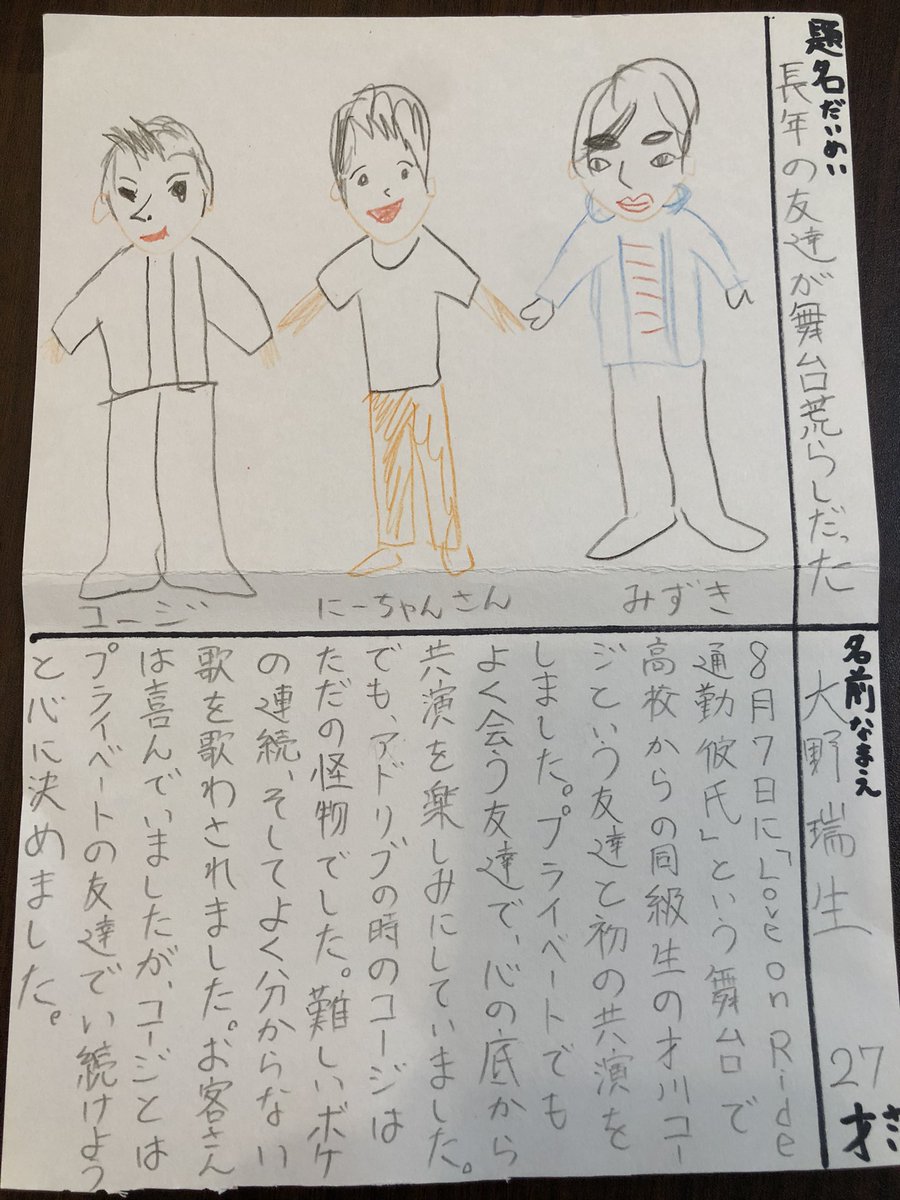 題名だいめい
長年の友達が舞台荒らしだった
名前なまえ
大野瑞生 27才さい
みずき
にーちゃんさん
コージ
8月7日に「Love on Ride
通勤彼氏」という舞台で
高校からの同級生の才川コー
ジという友達と初の共演を
しました。プライベートでも
よく会う友達で、心の底から
共演を楽しみにしていました。
でも、アドリブの時のコージは
ただの怪物でした。難しいボケ
の連続、そしてよく分からない
歌を歌わされました。お客さん
は喜んでいましたが、コージとは
プライベートの友達でい続けよう
と心に決めました。